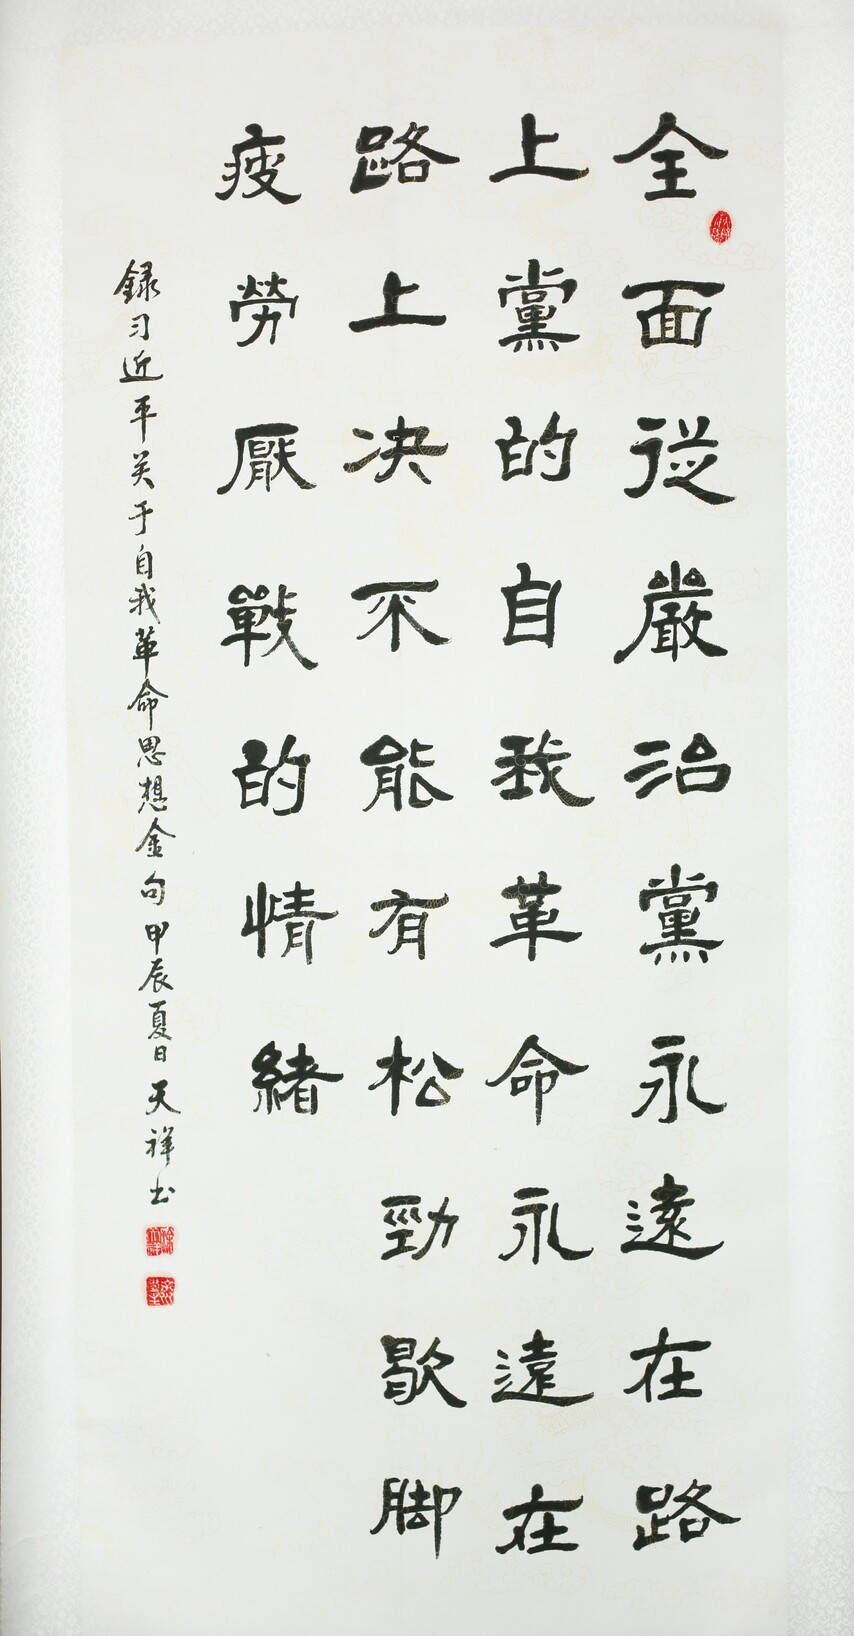 全面從嚴治黨永遠在路
上黨的自我革命永遠在
路上决不能有松勁歇脚
疲勞厭戰的情緒
録习近平关于自我革命思想金句甲辰夏日天祥书